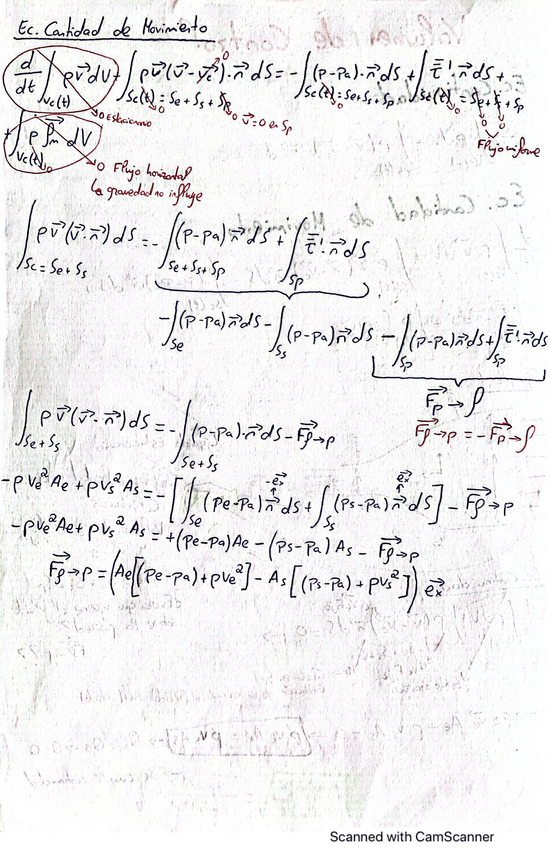 Ec. Cantidad de Movimiento
d/dt ∫_Vc(t) ρ v⃗ dV + ∫_Sc(t) ρ v⃗ (v⃗ - v⃗c) · n⃗ dS = - ∫_Sc(t) (p-pa) · n⃗ dS + ∫_Sc(t) τ̿' · n⃗ dS +
→0 = Se+Ss+Sp →0 = Se+Ss+Sp →0 = Se+Ss+Sp
0 Estacionario → v⃗=0 en Sp
Flujo uniforme
+ ∫_Vc(t) ρ f⃗m dV
→ 0 Flujo horizontal
↳ gravedad no influye
∫_Sc=Se+Ss ρ v⃗ (v⃗ · n⃗) dS = - ∫_Se+Ss+Sp (p-pa) n⃗ dS + ∫_Sp τ̿' · n⃗ dS
- ∫_Se (p-pa) n⃗ dS - ∫_Ss (p-pa) n⃗ dS - ∫_Sp (p-pa) n⃗ dS + ∫_Sp τ̿' · n⃗ dS
F⃗p→f
F⃗f→p = -F⃗p→f
∫_Se+Ss ρ v⃗ (v⃗ · n⃗) dS = - ∫_Se+Ss (p-pa) · n⃗ dS - F⃗f→p
-ρ ve² Ae + ρ vs² As = - [ ∫_Se (pe-pa) n⃗ dS + ∫_Ss (ps-pa) n⃗ dS ] - F⃗f→p
-e⃗x e⃗x
-ρ ve² Ae + ρ vs² As = +(pe-pa) Ae - (ps-pa) As - F⃗f→p
F⃗f→p = (Ae[(pe-pa) + ρve²] - As[(ps-pa) + ρvs²]) e⃗x
Scanned with CamScanner